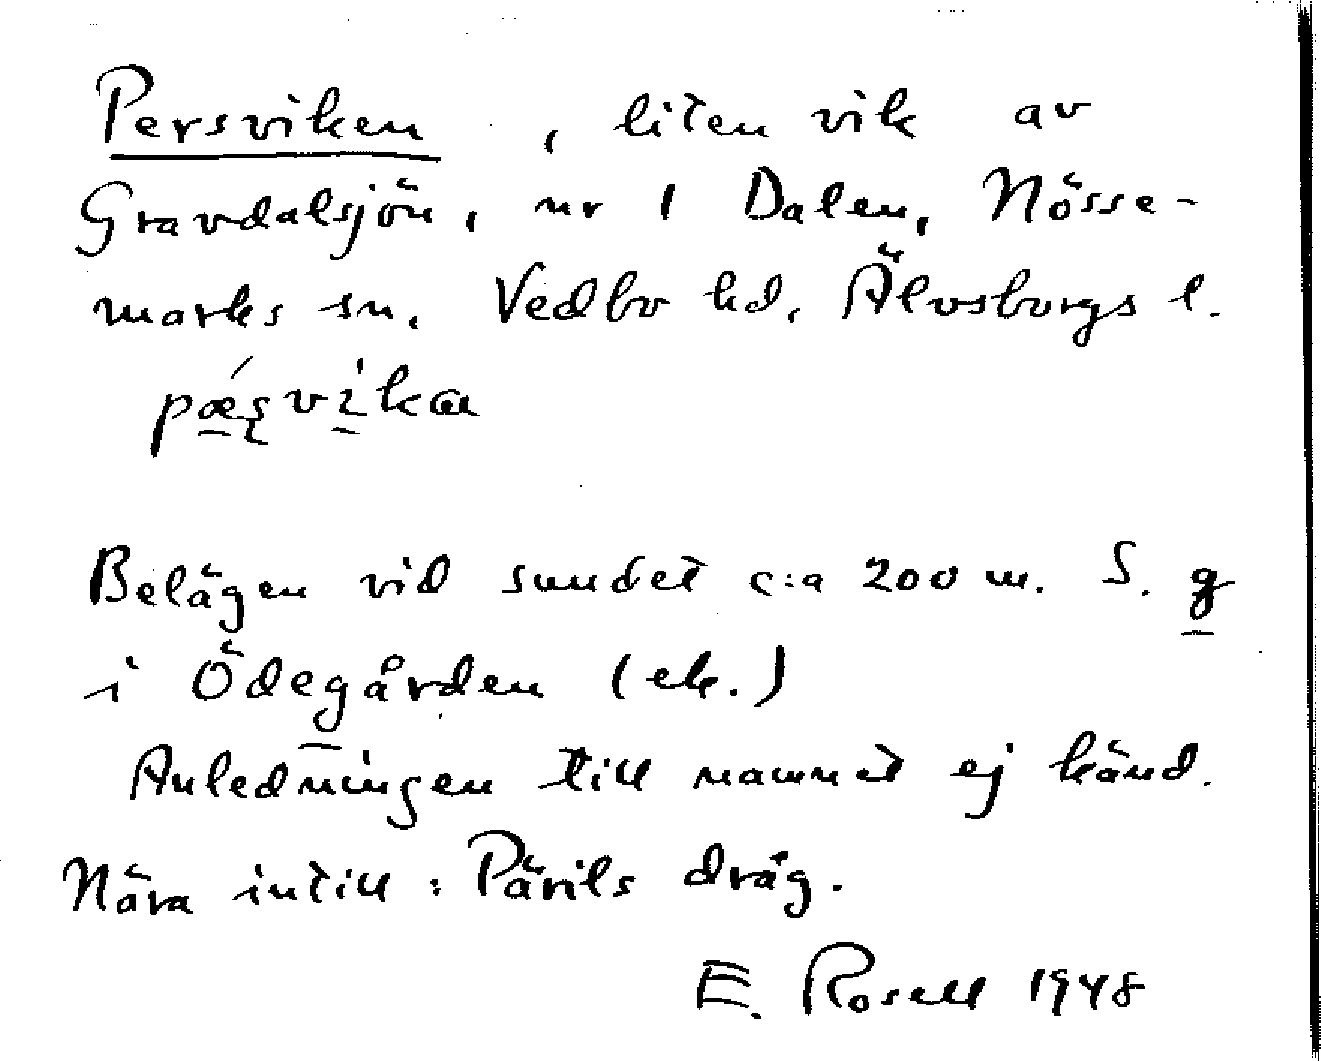 Persviken, liten vik av
Gravdalsjön, nr 1 Dalen, Nösse-
marks sn. Vedbo hd, Älvsborgs l.
Belägen vid sundet c:a 200 m. S. g
i Ödegården (ek.)
Anledningen till namnet ej känd.
Nära intill: Pärils dråg.
E. Rosell 1948